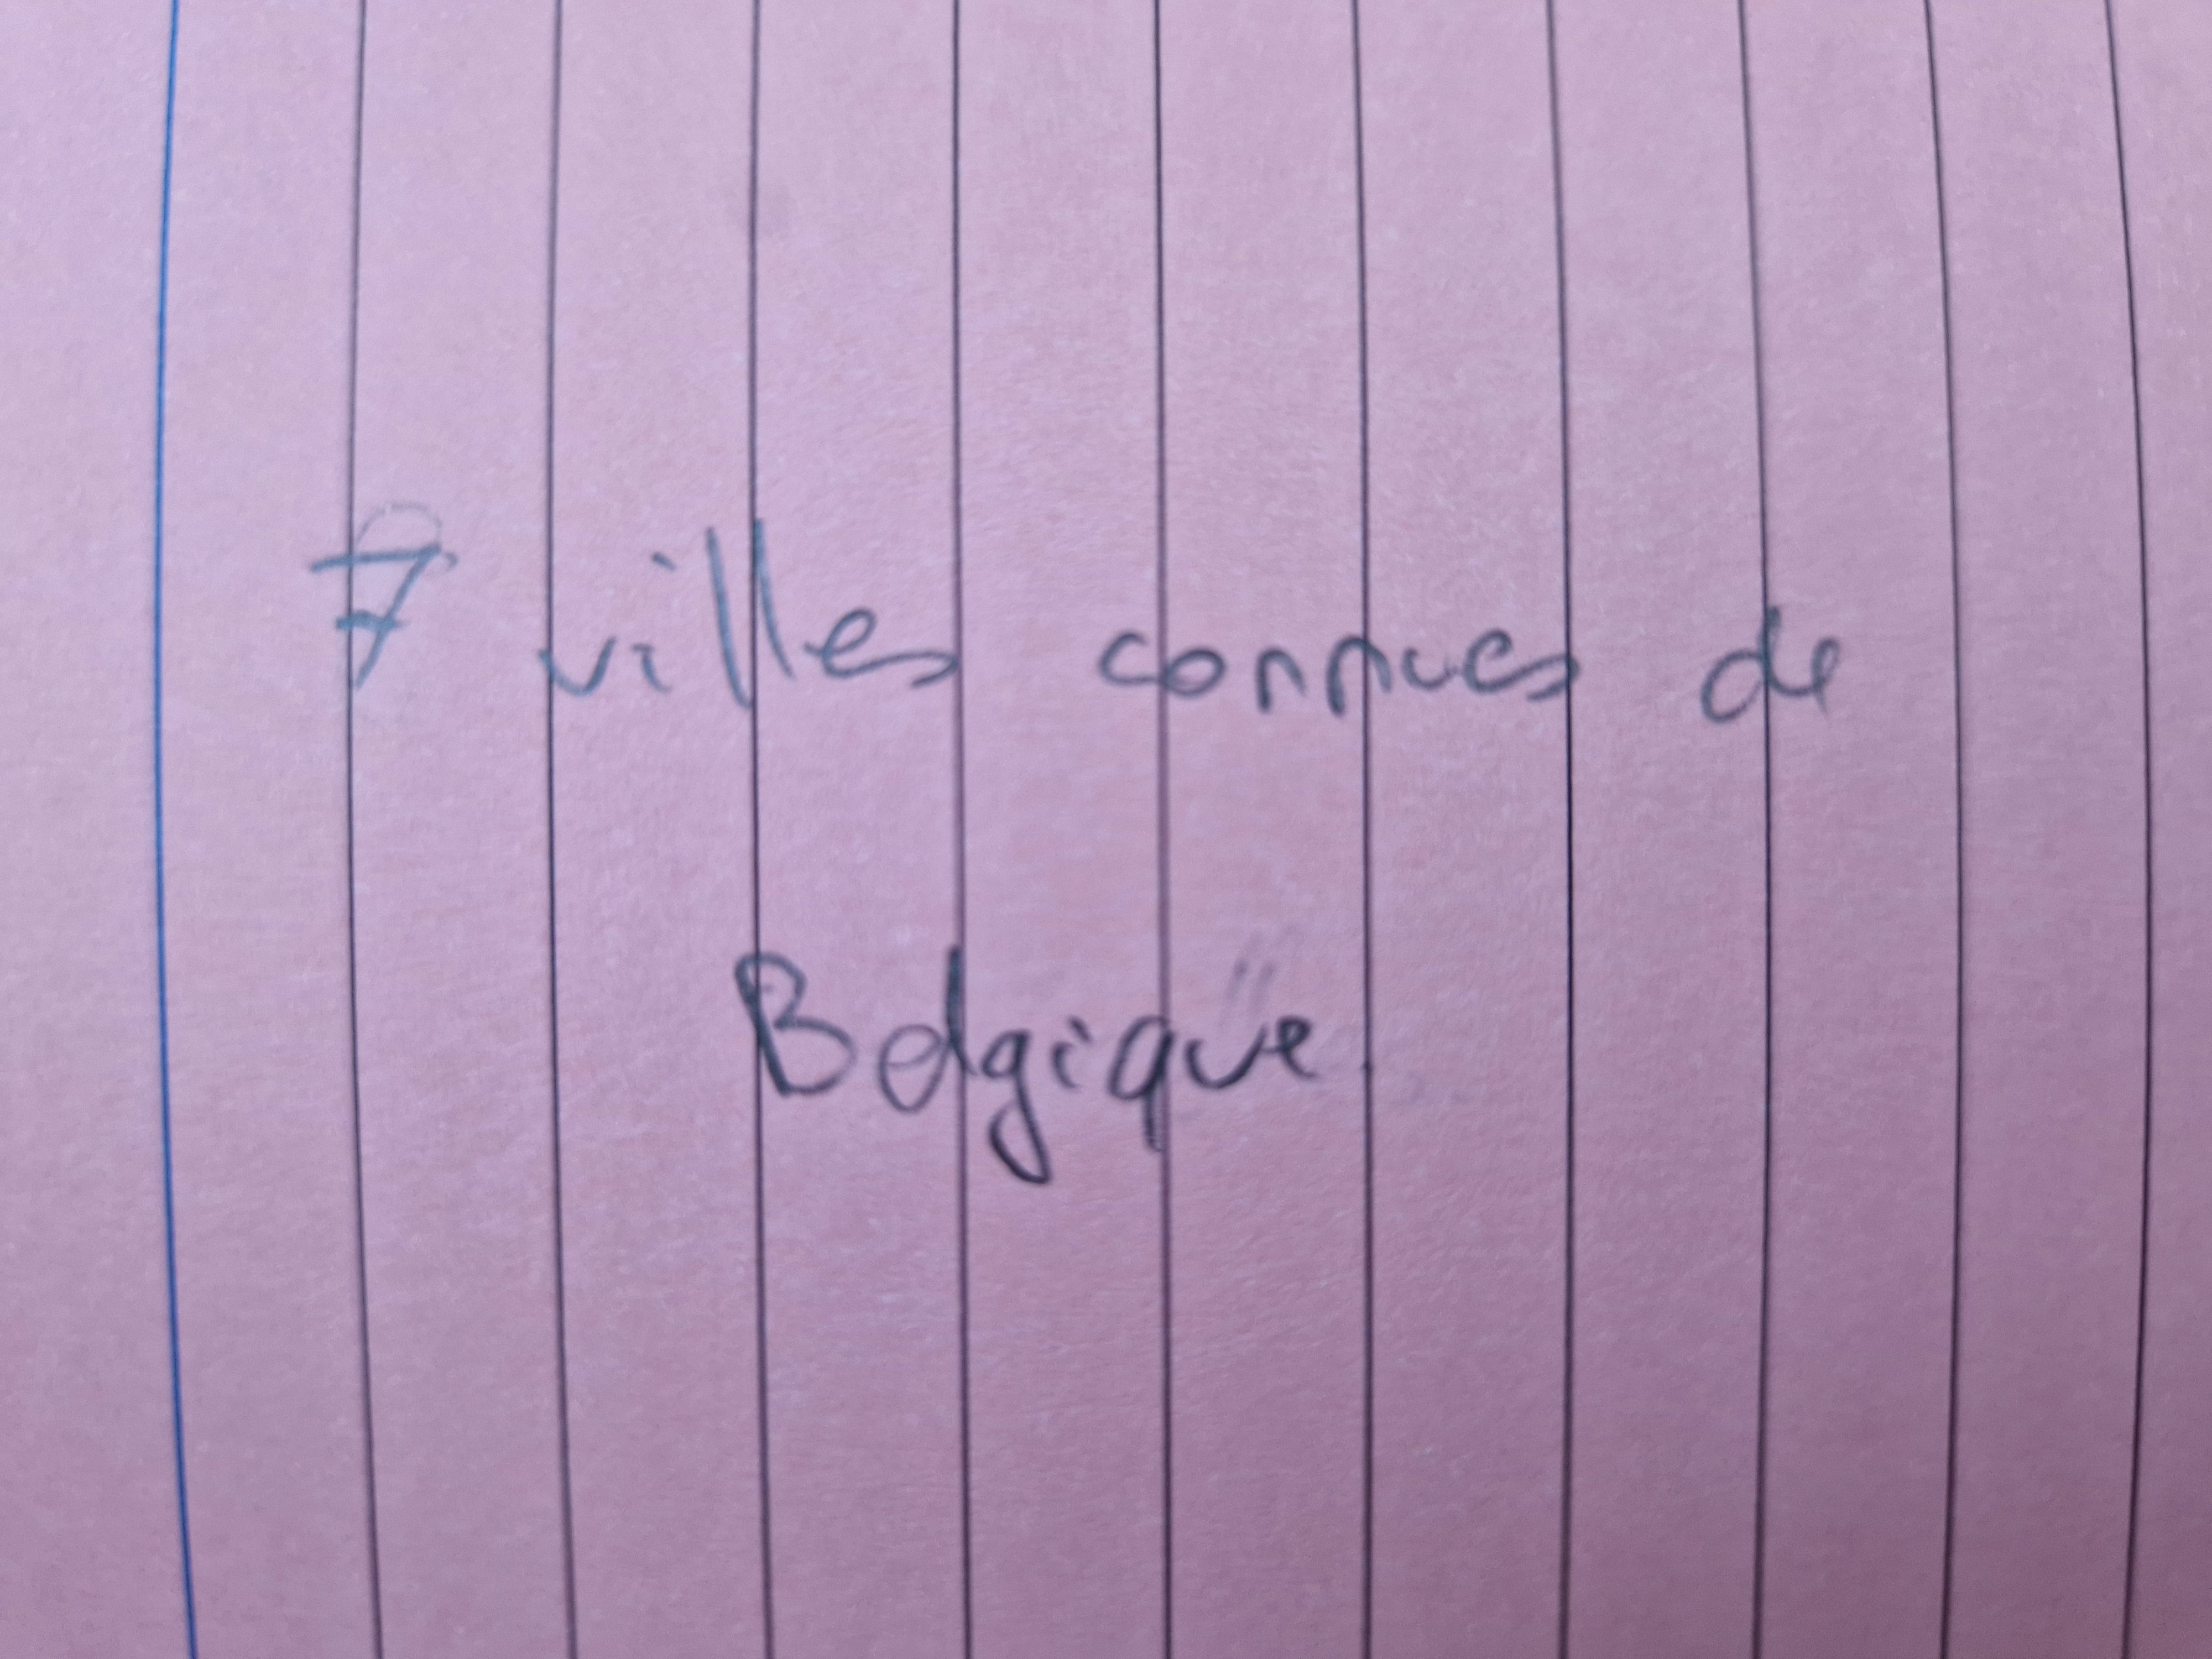 7 villes connues de
Belgique